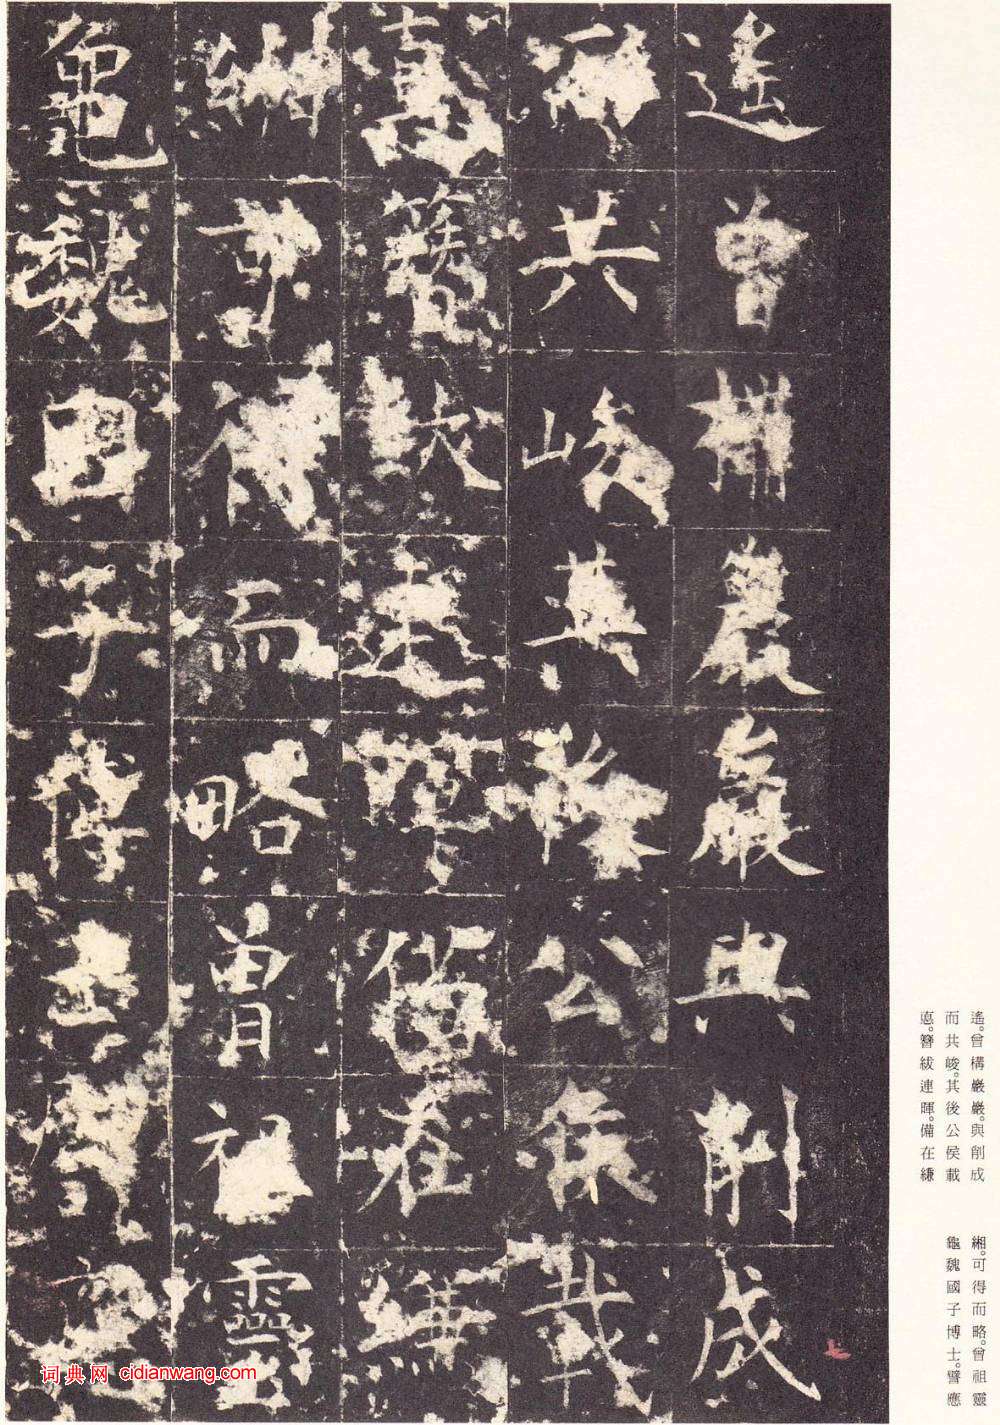 遙曾構巖巖與削成
而共峻其後公侯載
悳簪紱連暉備在縑
緗可得而略曾祖靈
龜魏國子博士譬應
遙。曾構巖巖。與削成
而共峻。其後公侯載
悳。簪紱連暉。備在縑
緗。可得而略。曾祖靈
龜魏國子博士。譬應
词典网 cidianwang.com